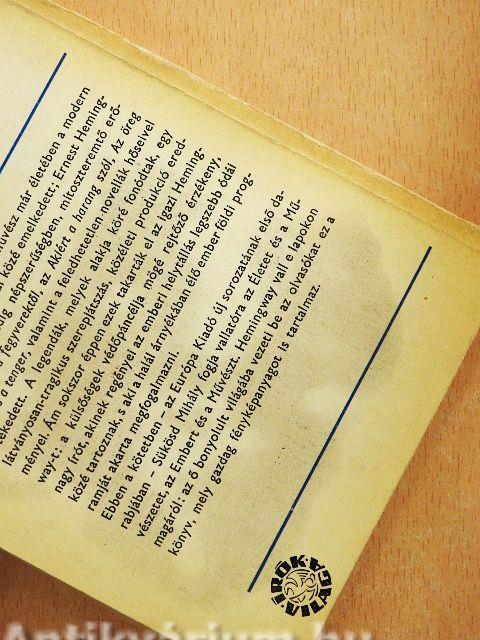 művész már életében a modern
közé emelkedett; Ernest Heming-
dig népszerűségben, mítoszteremtő erő-
a fegyverektől, az Akiért a harang szól, Az öreg
a tenger, valamint a feledhetetlen novellák hőseivel
tekedett. A legendák, melyek alakja köré fonódtak, egy
látványosan-tragikus szereplátszás, közéleti produkció ered-
ményei. Ám sokszor éppen ezek takarták el az igazi Heming-
way-t: a külsőségek védőpáncélja mögé rejtőző érzékeny,
nagy írót, akinek regényei az emberi helytállás legszebb ódái
közé tartoznak, s aki a halál árnyékában élő ember földi prog-
ramját akarta megfogalmazni.
Ebben a kötetben – az Európa Kiadó új sorozatának első da-
rabjában – Sükösd Mihály fogja vallatóra az Életet és a Mű-
vészetet, az Embert és a Művészt. Hemingway vall e lapokon
magáról: az ő bonyolult világába vezeti be az olvasókat ez a
könyv, mely gazdag fényképanyagot is tartalmaz.
ÍRÓK VILÁGA
Antikvárium.hu